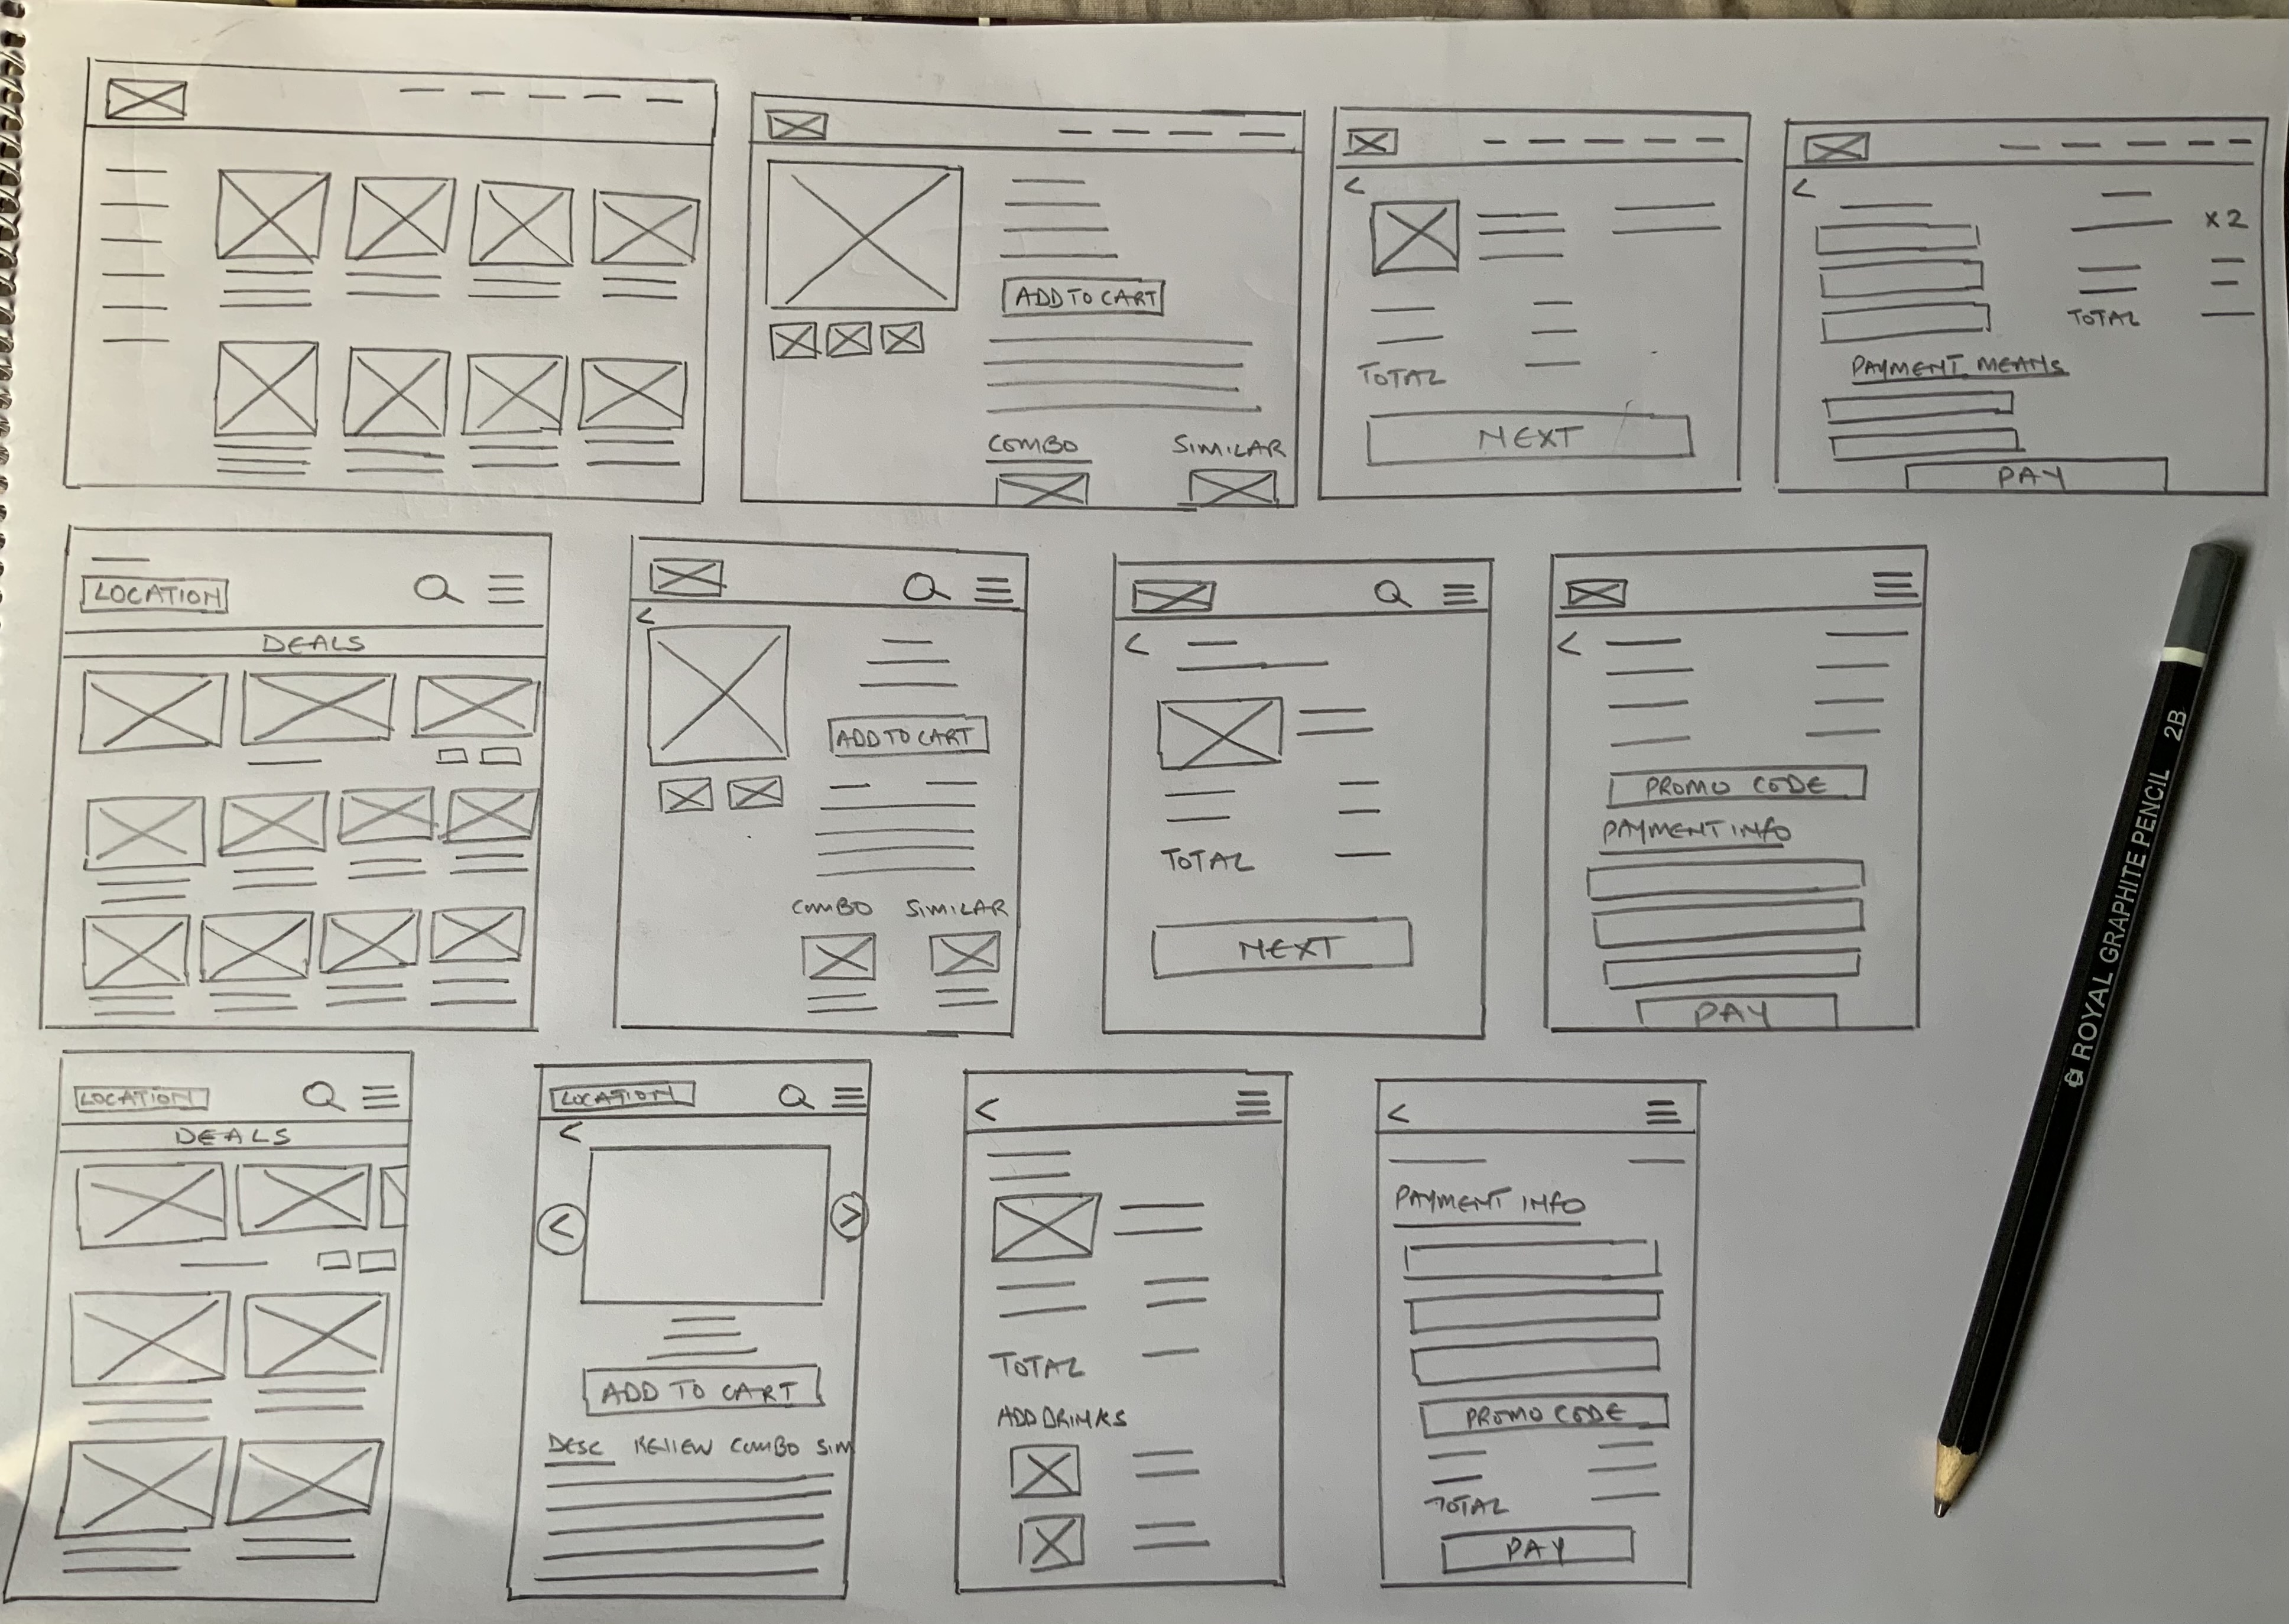 ADD TO CART
COMBO
SIMILAR
TOTAL
NEXT
x2
TOTAL
PAYMENT MEANS
PAY
LOCATION
DEALS
ADD TO CART
COMBO
SIMILAR
TOTAL
NEXT
PROMO CODE
PAYMENT INFO
PAY
ROYAL GRAPHITE PENCIL 2B
LOCATION
DEALS
LOCATION
ADD TO CART
DESC REVIEW COMBO SIM
TOTAL
ADD DRINKS
PAYMENT INFO
PROMO CODE
TOTAL
PAY